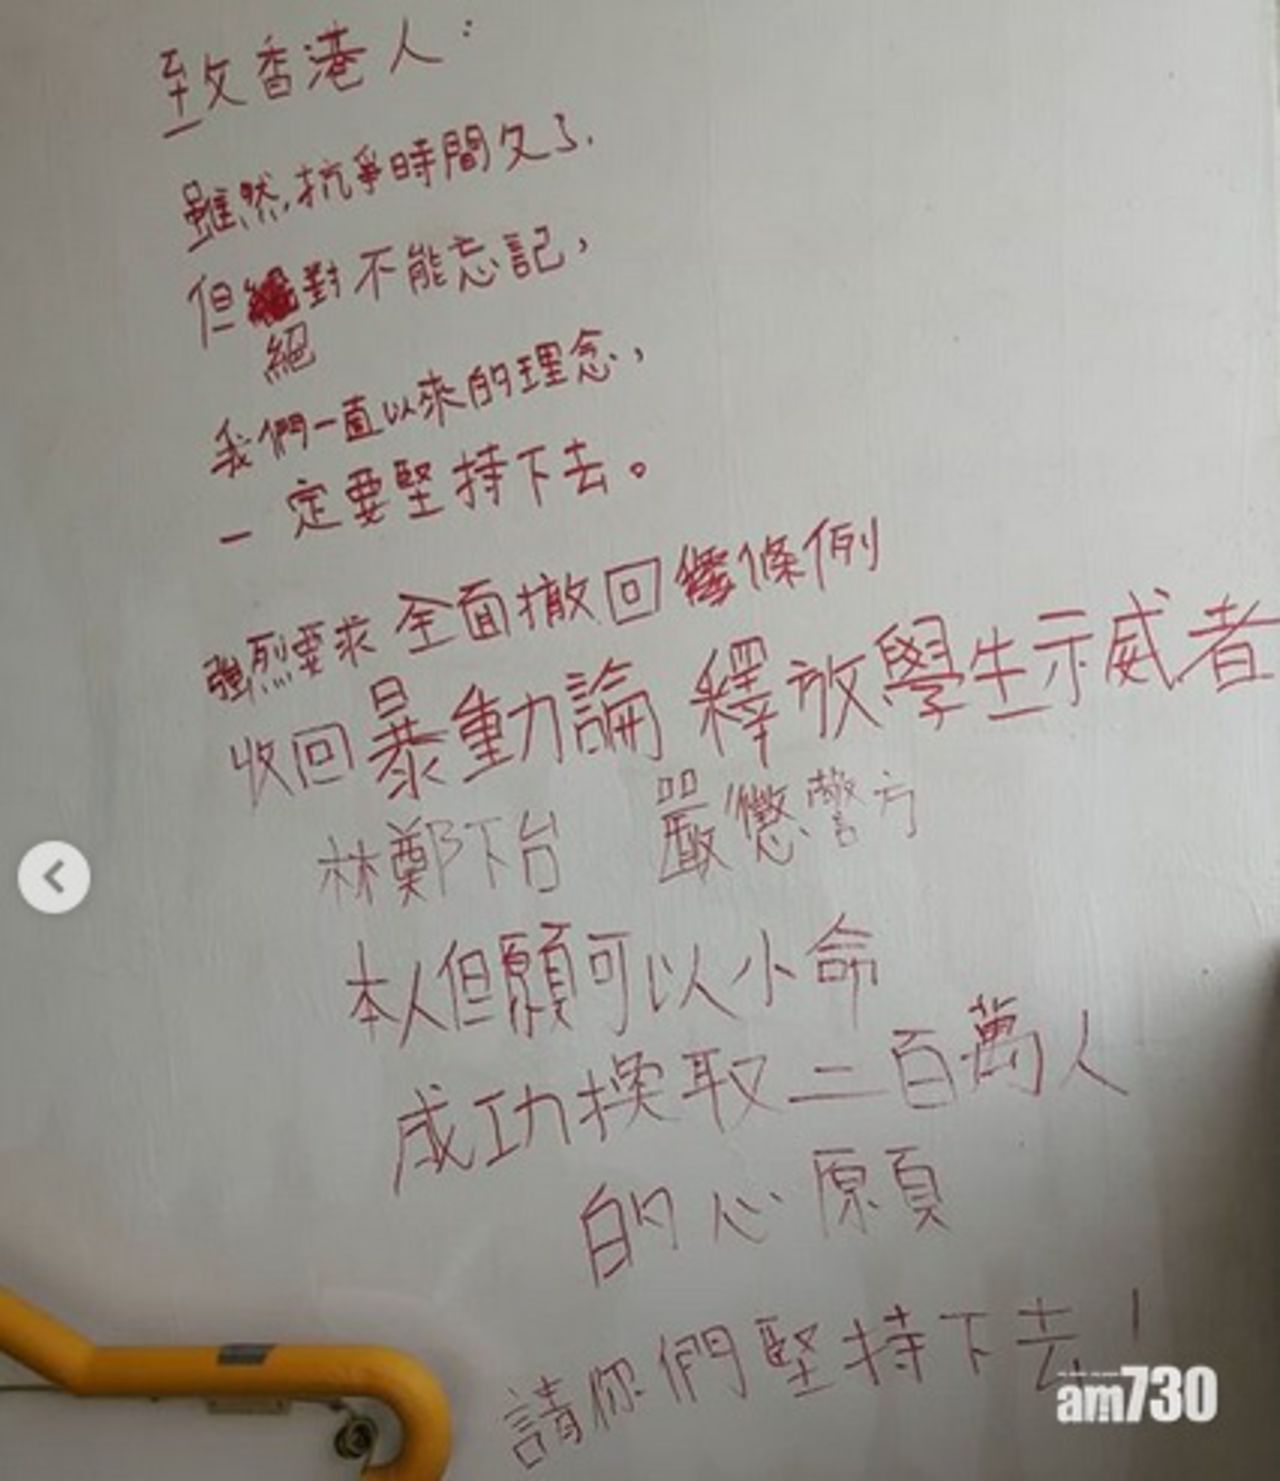 致香港人：
雖然,抗爭時間久了.
但對不能忘記，
絕
我們一直以來的理念，
一定要堅持下去。
強烈要求全面撤回條例
收回暴動論 釋放學生示威者
林鄭下台 嚴懲警方
本人但願可以小命
成功換取二百萬人
的心願
請你們堅持下去！
am730